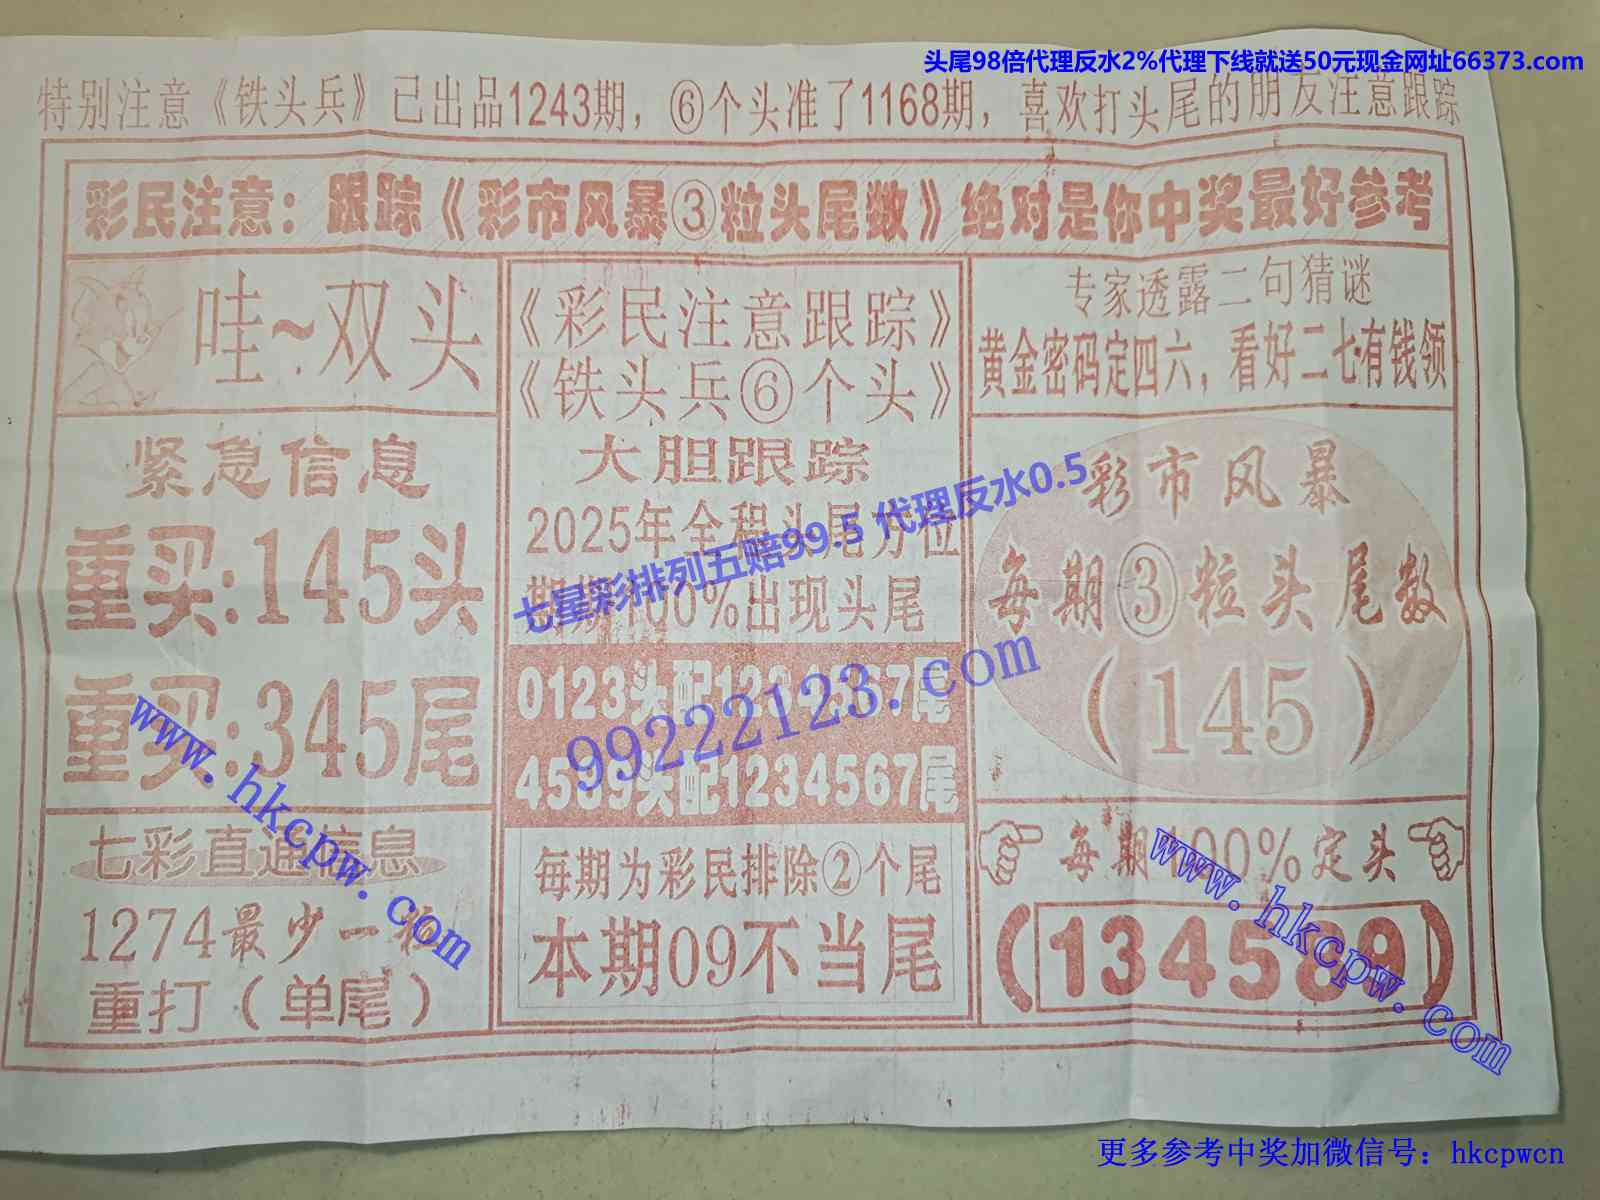 头尾98倍代理反水2%代理下线就送50元现金网址66373.com
特别注意《铁头兵》已出品1243期，⑥个头准了1168期，喜欢打头尾的朋友注意跟踪
彩民注意：跟踪《彩市风暴③粒头尾数》绝对是你中奖最好参考
哇~双头
紧急信息
重买:145头
重买:345尾
七彩直通信息
1274最少一
重打（单尾）
《彩民注意跟踪》
《铁头兵⑥个头》
大胆跟踪
2025年全程头尾方位
期期100%出现头尾
0123头配1234567尾
4589头配1234567尾
每期为彩民排除②个尾
本期09不当尾
专家透露二句猜谜
黄金密码定四六，看好二七有钱领
彩市风暴
每期③粒头尾数
（145）
每期100%定头
（134589）
七星彩排列五赔99.5 代理反水0.5
99222123.com
www.hkcpw.com
www.hkcpw.com
更多参考中奖加微信号：hkcpwcn